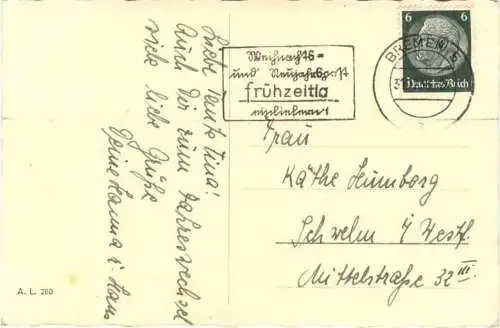 Liebe Tante Tina!
Auch Dir zum Jahreswechsel
viele liebe Grüße
Deine Hanna u. Hans
A. L. 260
Weihnachts-
und Neujahrspost
frühzeitig
einliefern!
BREMEN 5
6 6
Deutsches Reich
Frau
Käthe Humborg
Schwelm i/Westf.
Mittelstraße 32 III.